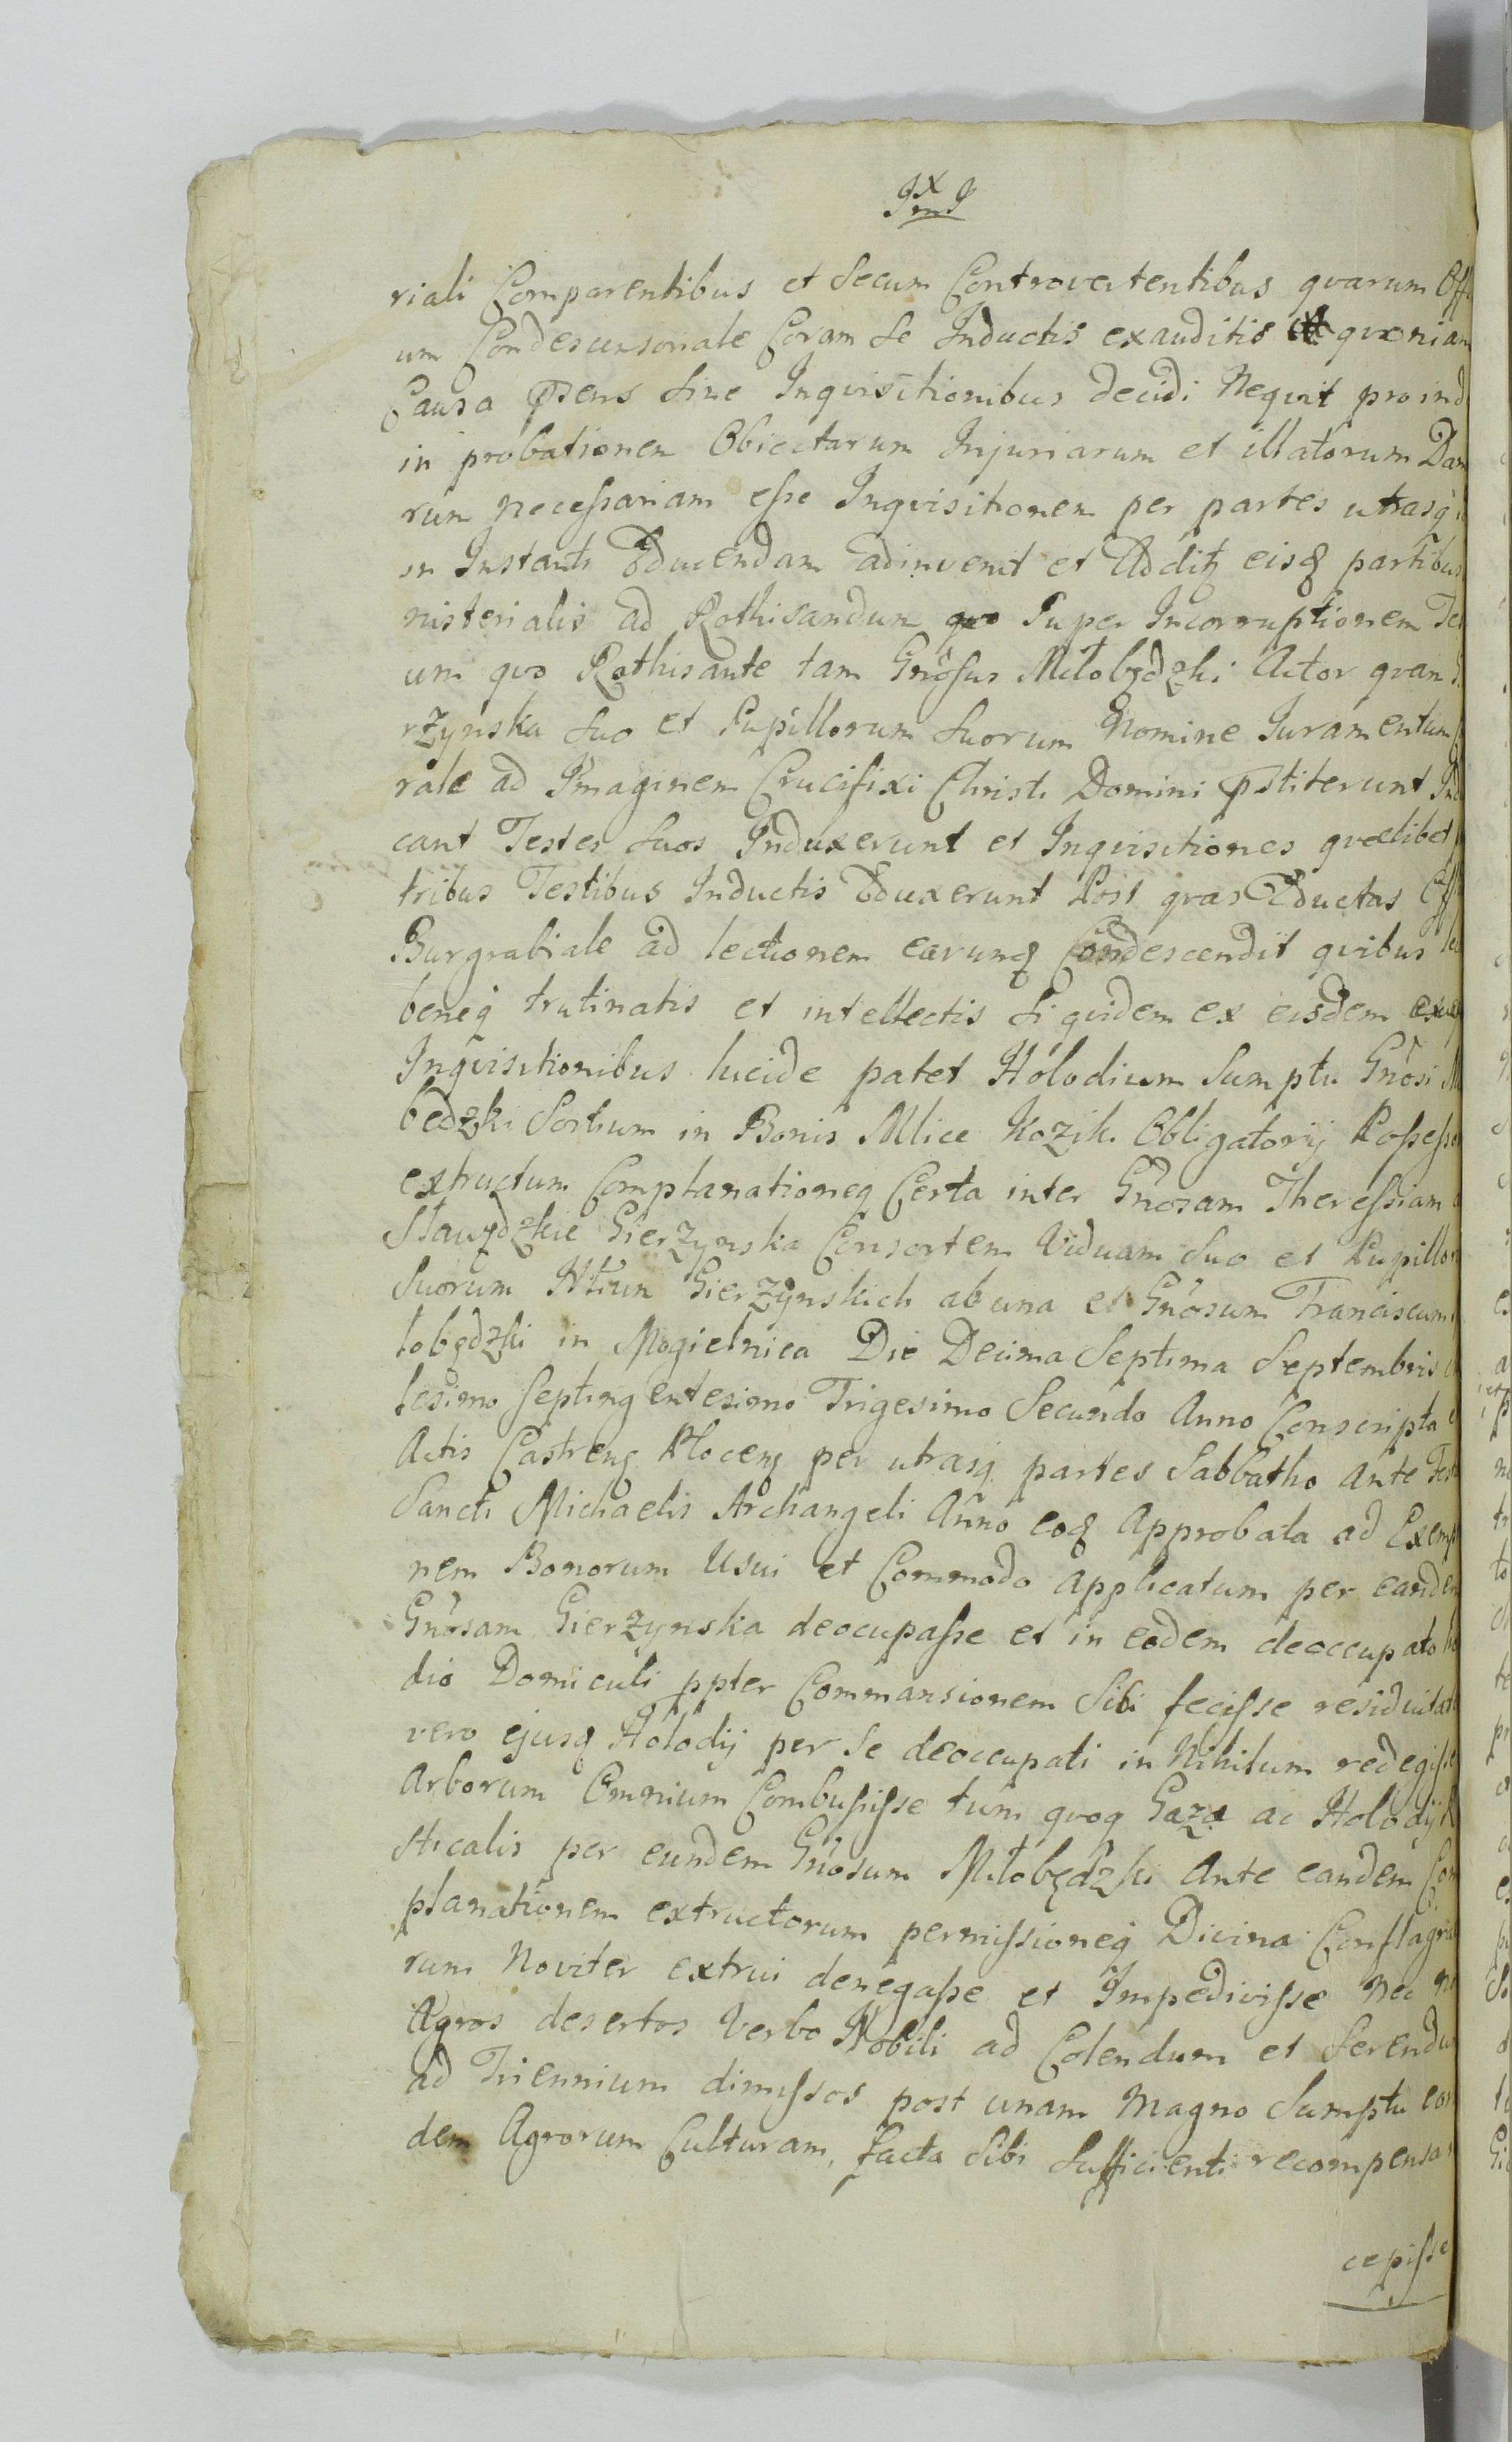 riali Comparentibus et Secum Controvertentibus qvarum Off
um Condescensoriale Coram Se Inductis exauditis qvoniam
Causa pñens Sine Inqvisitionibus decidi Neqvit proind
in probationem Obiectarum Injuriarum et illatorum Dam
rum Necessariam esse Inqvisitionem per partes utrasq
in Instanti Educendam adinvenit et Addit eisq partibus
nisterialis ad Rothisandum Super Incorruptionem Te
um qvo Rothisante tam Gnosus Miłobędzki Actor qvam
rzynska Suo et Pupillorum Suorum Nomine Juramentum
rale ad Imaginem Crucifixi Christi Domini pstiterunt Ind
cant Testes Suos Induxerunt et Inqvisitiones qvælibet
tribus Testibus Inductis Eduxerunt Post qvas Eductas Off
Burgrabiale ad lectionem earunq Condescendit qvibus lec
beneq trutinatis et intellectis Siqvidem ex eisdem
Inqvisitionibus lucide patet Holodium Sumptu Gnosi M
bedzki Sortium in Bonis Mlice Kozik. Obligatorij Possesso
extructum Complanationeq Certa inter Gnosam Theressiam
Stawędzkie Gierzynska Consortem Viduam Suo et Pupillor
Suorum Ntium Gierzynskich ab una et Gnosum Franciscum
łobędzki in Mogielnica Die Decima Septima Septembris
lesimo Septingentesimo Trigesimo Secundo Anno Conscripta
Actis Castreng Płoceng per utrasq partes Sabbatho Ante Fes
Sancti Michaelis Archangeli Anno eoq Approbata ad Exemp
nem Bonorum Usui et Commodo Applicatum per eandem
Gnosam Gierzynska deocupasse et in eodem deoccupato ho
dio Domiculi ppter Commansionem Sibi fecisse residuitat
vero ejusq Holodij per Se deoccupati in Nihilum redegisse
Arborum Omnium Combussisse tum qvoq Gaza ac Holodij
sticalis per eundem Gnosum Miłobędzki Ante eandem Com
planationem extructorum permissioneq Divina Conflagra
rum Noviter extrui denegasse et Impedivisse Nec no
Agros desertos Verbo Nobili ad Colendum et Serendu
ad Triennium dimissos post unam Magno Sumptu eor
dem Agrorum Culturam, facta Sibi Sufficienti recompensa
cepisse